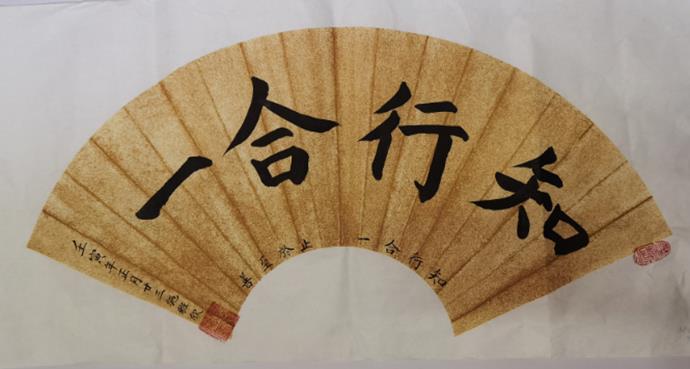 知行合一
知行合一
止於至善
壬寅年正月廿三